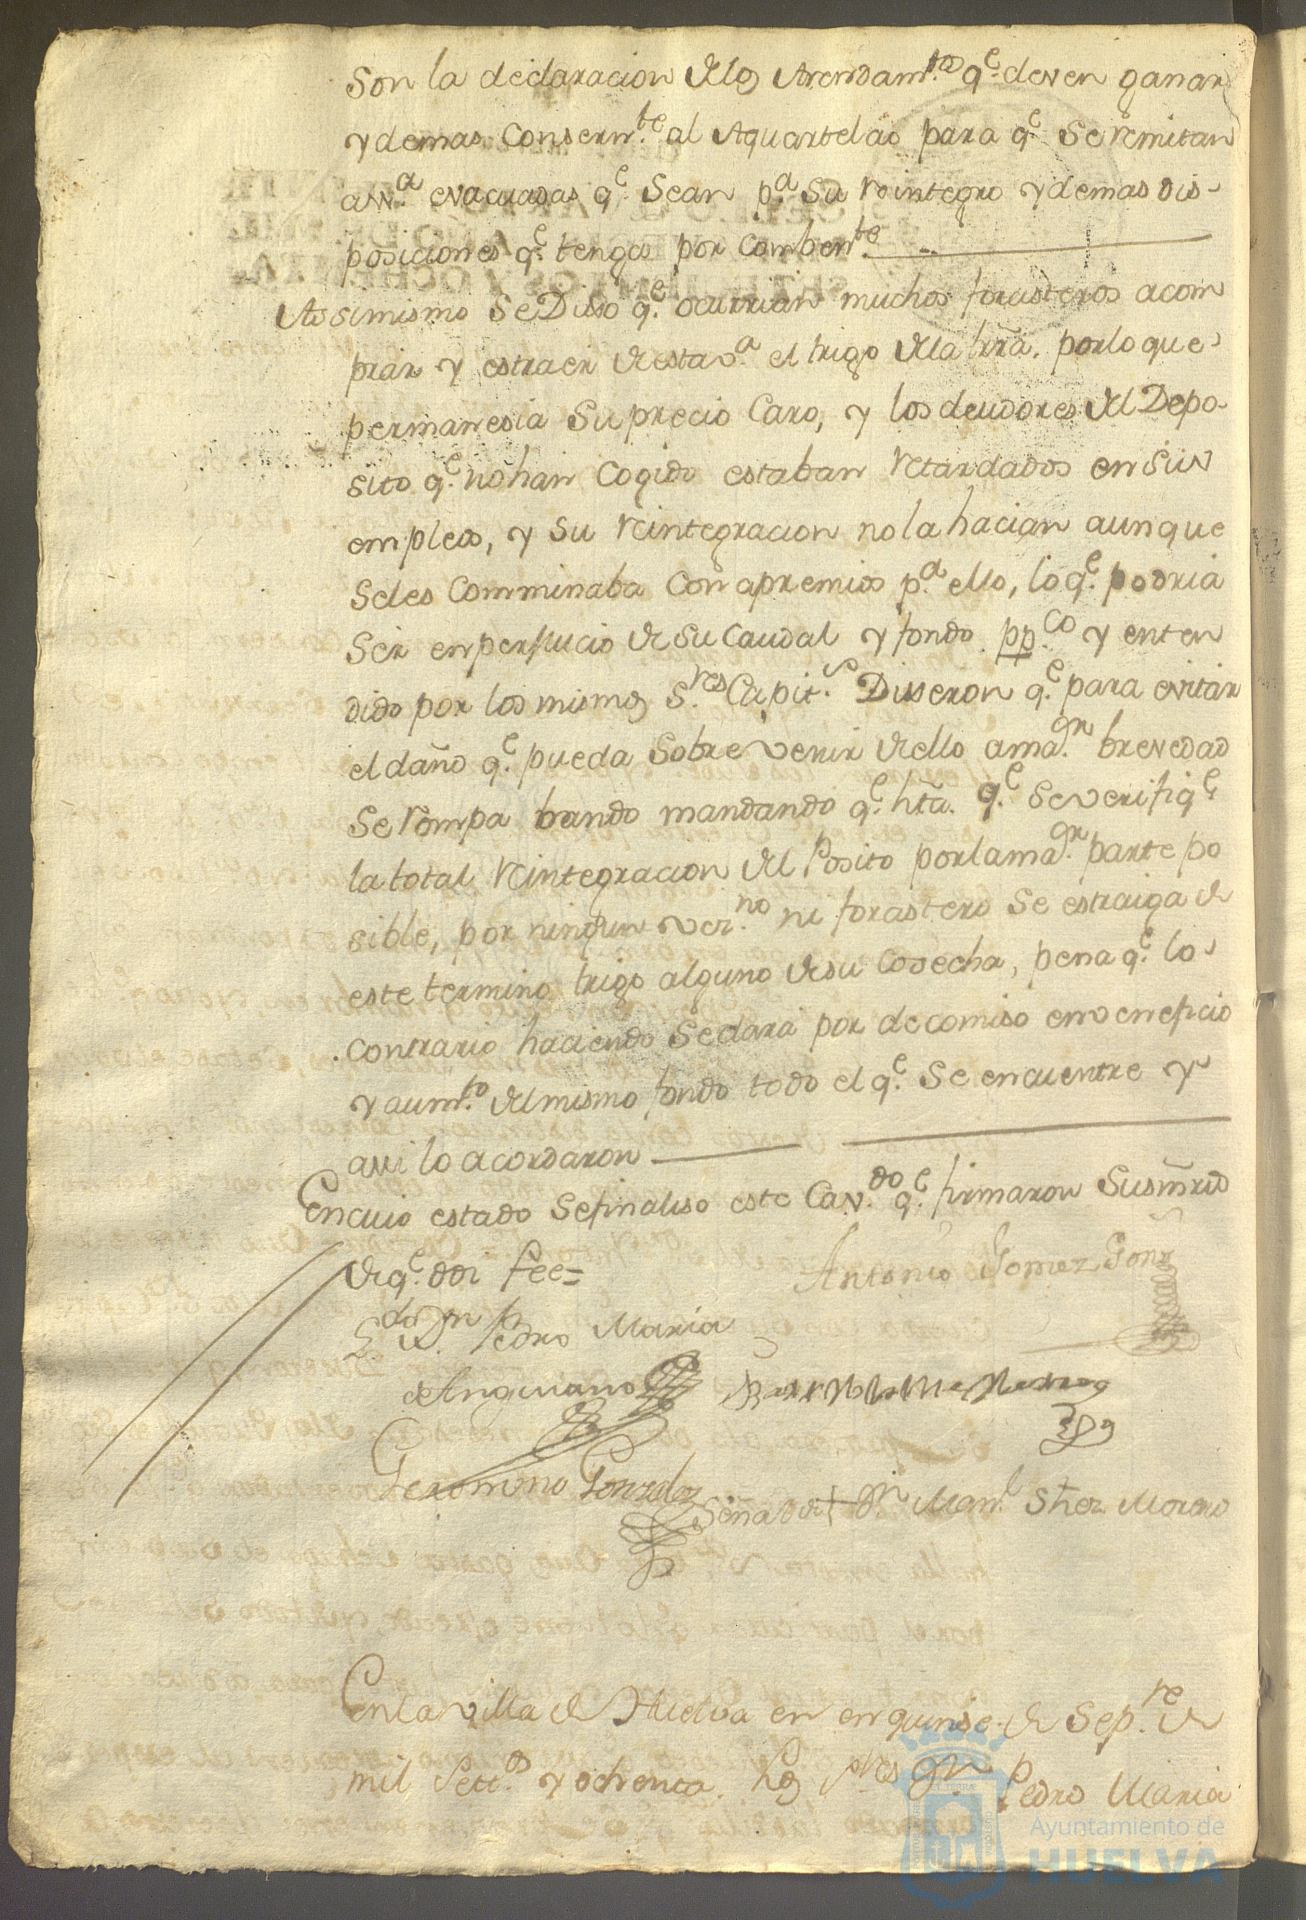 Son la declaracion de los Arrendam.tos q.e deven ganar
y demas Consern.te al Aquartelao para q.e se remitan
a W.a evacuadas q.e Sean p.a Su reintegro y demas dis-
posiciones q.e tenga por Comben.te
Assimismo Se Disso q.e ocurrian muchos forasteros a com
prar y estraer de esta v.a el trigo de la trra. por lo que
permanesia Su precio Caro, y los deudores del Depo-
sito q.e no han Cogido estaban retardados en sus
empleos, y Su reintegracion no la hacian aunque
Seles Comminaba Con apremios p.a ello, lo q.e podria
Ser en perjuicio de su Caudal y fondo pp.co y enten
dido por los mismos S.res Capit.s Disseron q.e para evitar
el daño q.e pueda Sobrevenir de ello a ma.or brevedad
Se rompa bando mandando q.e hta. q.e Se verifiq.e
la total reintegracion del Posito por la ma.or parte po
sible, por ningun vez.no ni forastero Se estraiga de
este termino trigo alguno de su Cosecha, pena q.e lo
contrario haciendo Se dara por decomiso en veneficio
y aum.to del mismo fondo todo el q.e Se encuentre y
assi lo acordaron
En cuio estado Se finaliso este Cav.do q.e firmaron Susmrds
de q.e doi fee=
Antonio Gomez Gonz
L.do Dn. Pedro Maria
de Anguiano
Geronimo Gonzalez
Señal de + Dn. Man.l Shez Moreno
En la villa de Huelva en en quinse de Sep.re de
mil Sett.os y ochenta. Los S.res Dn. Pedro Maria
Ayuntamiento de
HUELVA